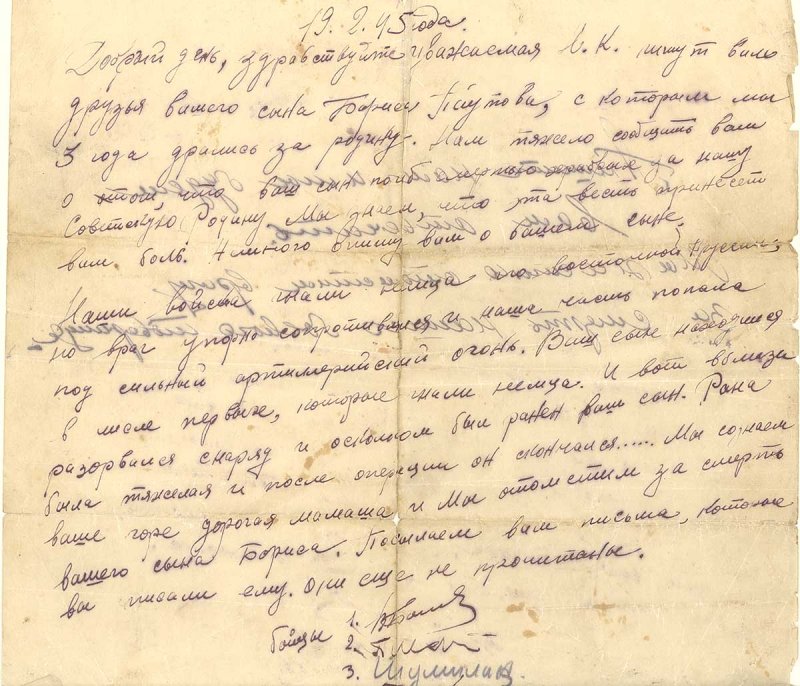 19. 2. 45 года.
Добрый день, здравствуйте уважаемая М. К. пишут вам
друзья вашего сына Бориса, с которым мы
3 года дрались за родину. Нам тяжело сообщить вам
о том, что ваш сын погиб за нашу
Советскую Родину Мы знаем, что эта весть принесет
вам боль. Немного опишу вам о вашем сыне.
Наши войска гнали немца по восточной Пруссии,
но враг упорно сопротивлялся и наша часть попала
под сильный артиллерийский огонь. Ваш сын находился
в числе первых, которые гнали немца. И вот вблизи
разорвался снаряд и осколком был ранен ваш сын. Рана
была тяжелая и после операции он скончался..... Мы сознаем
ваше горе дорогая мамаша и Мы отомстим за смерть
вашего сына Бориса. Посылаем вам письма, которые
вы писали ему. Они еще не прочитаны.
бойцы 1.
2.
3.